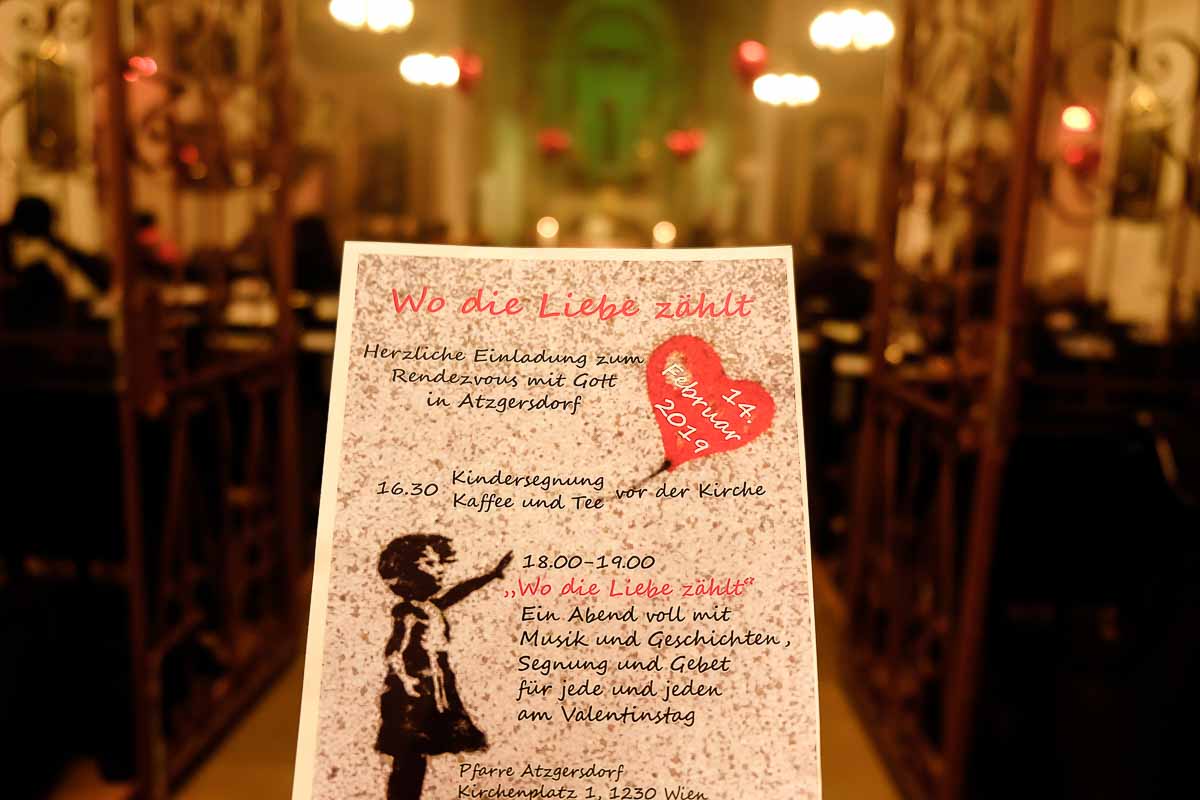 Wo die Liebe zählt
Herzliche Einladung zum
Rendezvous mit Gott
in Atzgersdorf
14.
Februar
2019
16.30 Kindersegnung
Kaffee und Tee vor der Kirche
18.00-19.00
„Wo die Liebe zählt“
Ein Abend voll mit
Musik und Geschichten,
Segnung und Gebet
für jede und jeden
am Valentinstag
Pfarre Atzgersdorf
Kirchenplatz 1, 1230 Wien